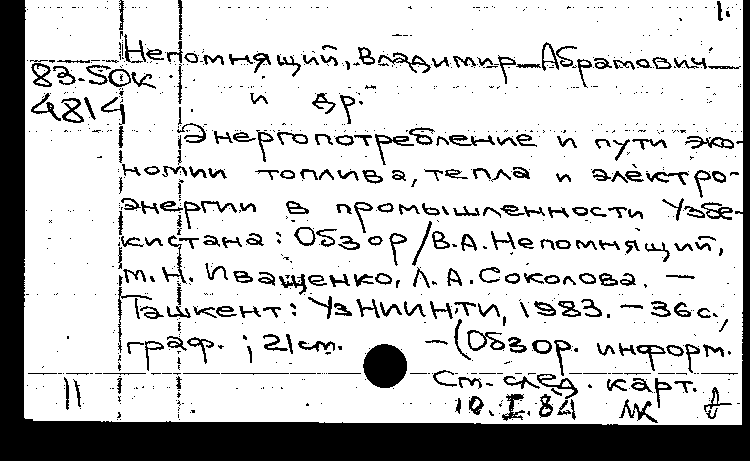 1.
Непомнящий, Владимир Абрамович
83-50к
и др.
4814
Энергопотребление и пути эко-
номии топлива, тепла и электро-
энергии в промышленности Узбе-
кистана: Обзор / В.А. Непомнящий,
М.Н. Иващенко, Л.А. Соколова. —
Ташкент: УзНИИНТИ, 1983. — 36 с.,
граф.; 21 см. — (Обзор. информ.
См. след. карт.
11
10.I.84 МК